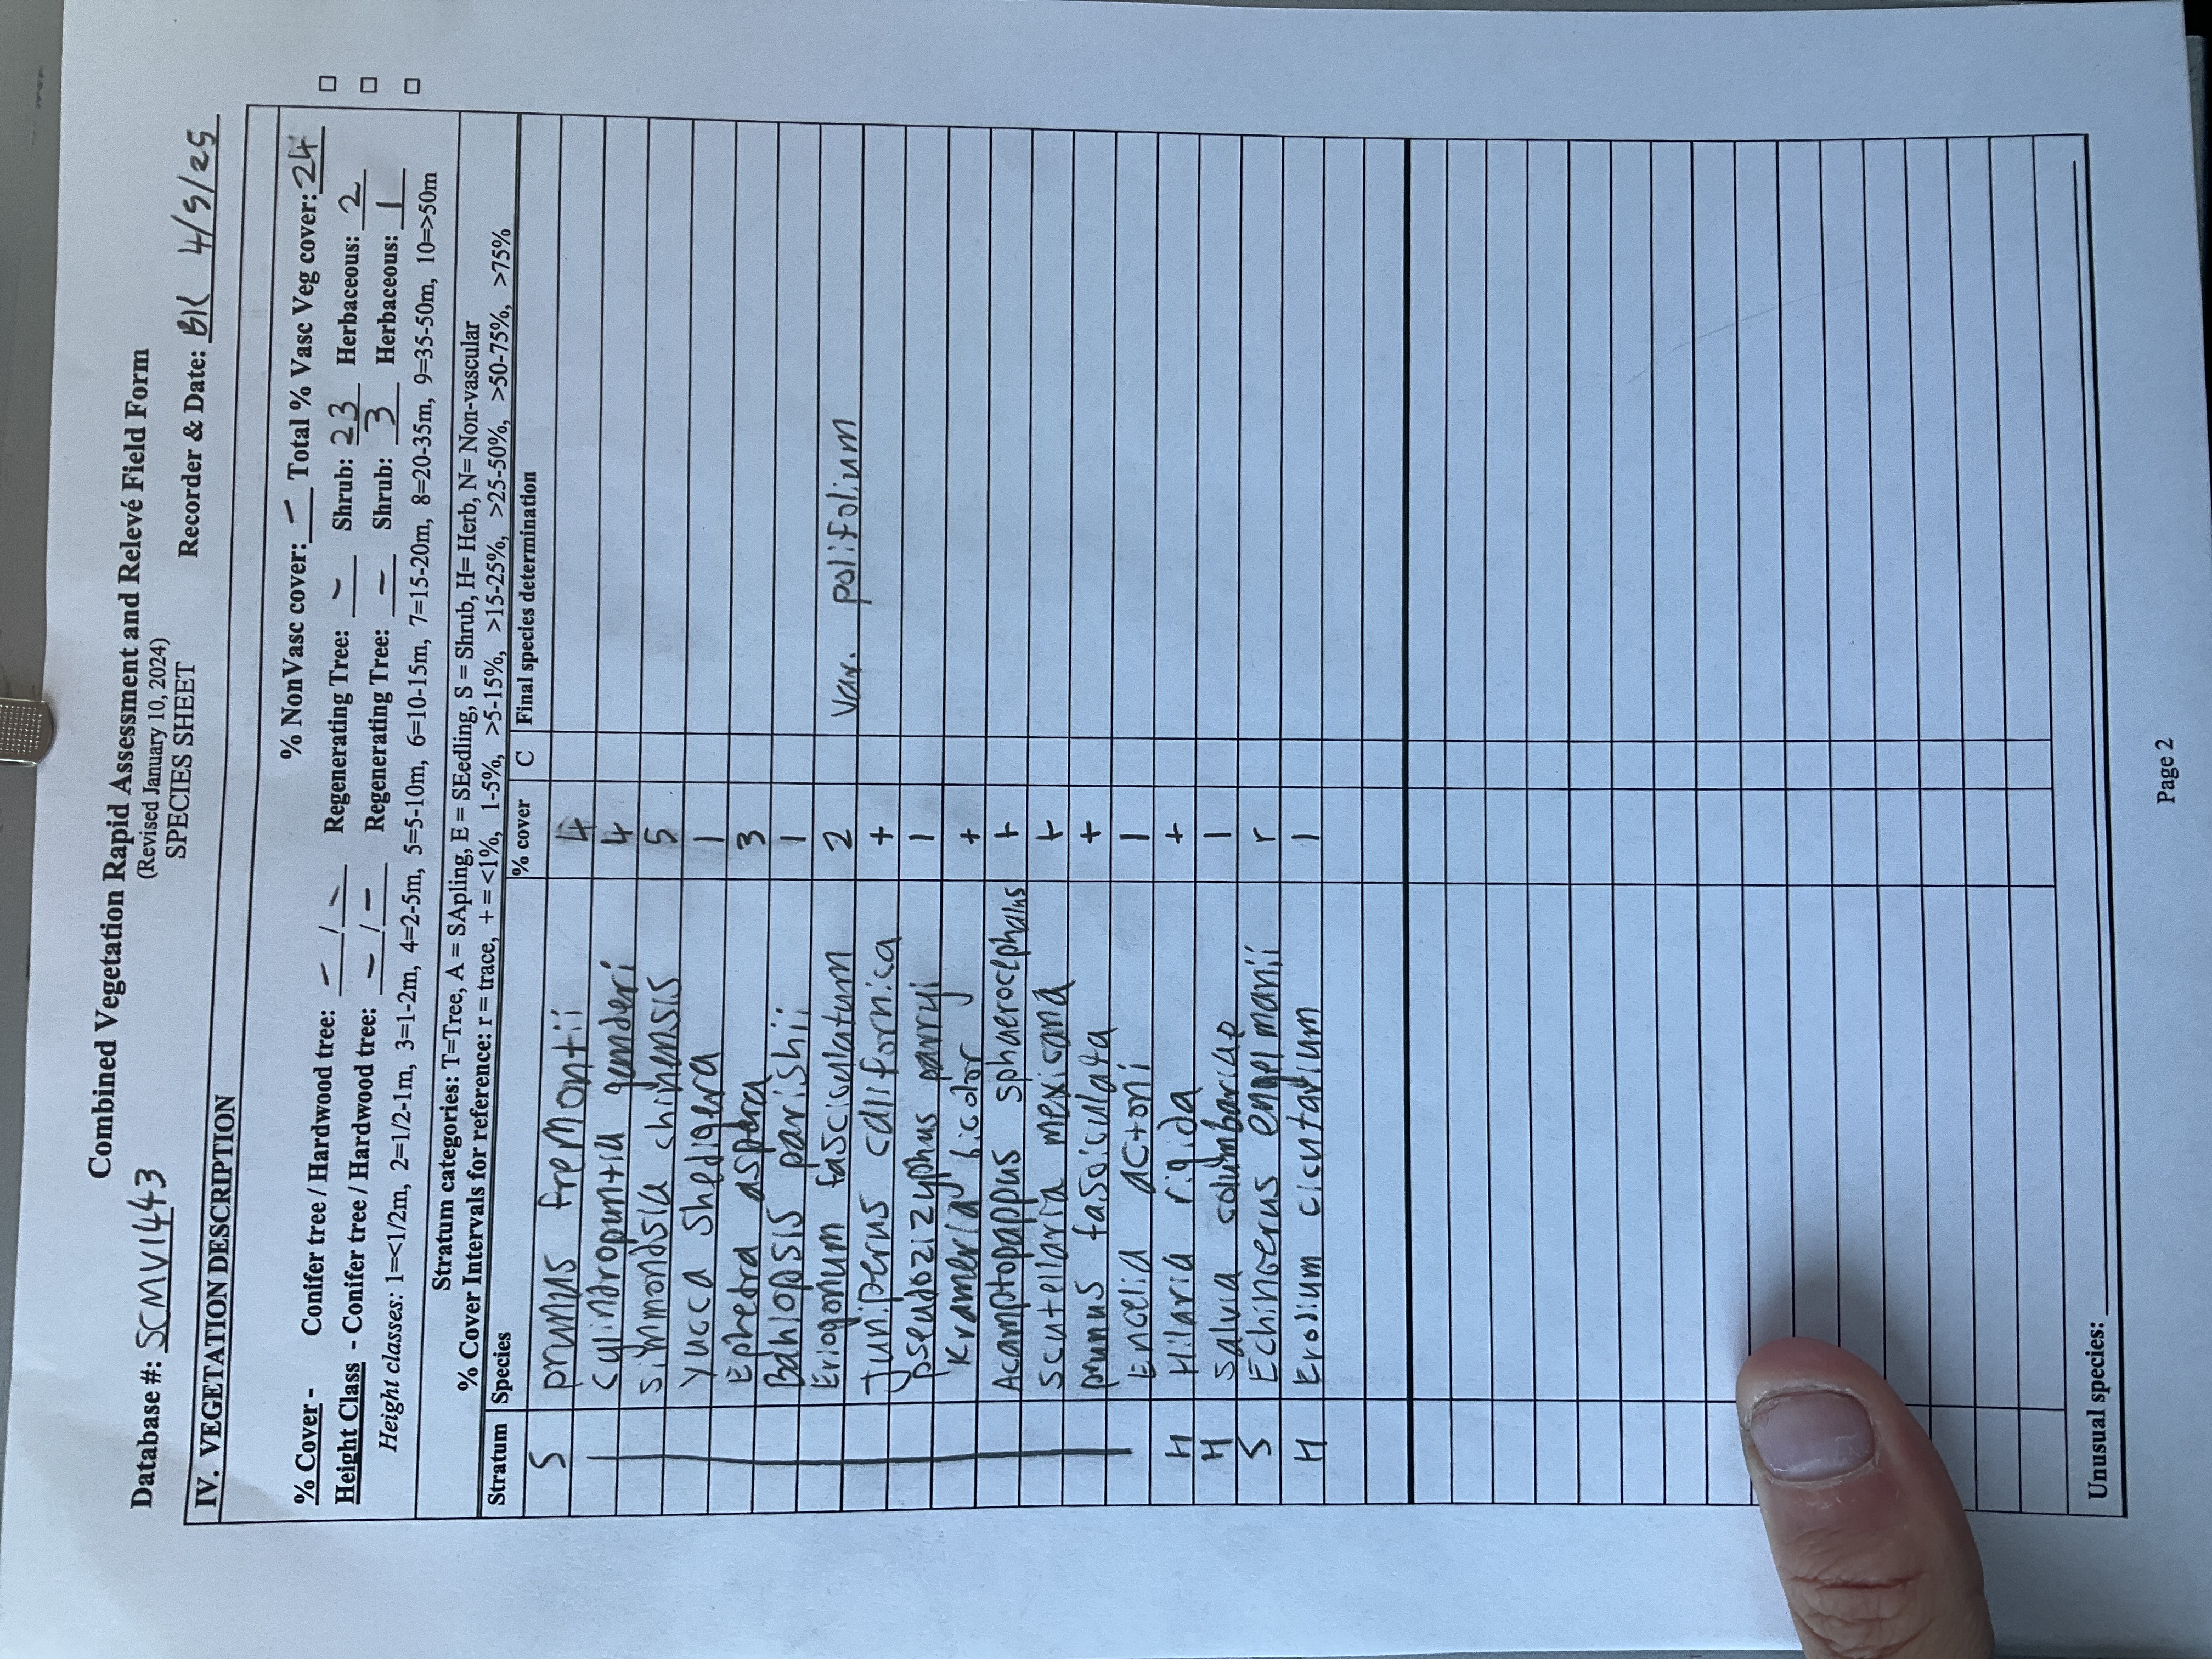 Combined Vegetation Rapid Assessment and Relevé Field Form
(Revised January 10, 2024)
SPECIES SHEET
Database #: SCMV1443 Recorder & Date: BK 4/9/25
IV. VEGETATION DESCRIPTION
% NonVasc cover: – Total % Vasc Veg cover: 24
% Cover - Conifer tree / Hardwood tree: – / – Regenerating Tree: – Shrub: 23 Herbaceous: 2
Height Class - Conifer tree / Hardwood tree: – / – Regenerating Tree: – Shrub: 3 Herbaceous: 1
Height classes: 1=<1/2m, 2=1/2-1m, 3=1-2m, 4=2-5m, 5=5-10m, 6=10-15m, 7=15-20m, 8=20-35m, 9=35-50m, 10=>50m
Stratum categories: T=Tree, A = SApling, E = SEedling, S = Shrub, H= Herb, N= Non-vascular
% Cover Intervals for reference: r = trace, + = <1%, 1-5%, >5-15%, >15-25%, >25-50%, >50-75%, >75%
Stratum Species % cover C Final species determination
S prunus fremontii 4
Cylindropuntia ganderi 4
Simmondsia chinensis 5
Yucca Shedigera 1
Ephedra aspera 3
Bahiopsis parishii 1
Eriogonum fasciculatum 2 Var. polifolium
Juniperus californica +
pseudoziziyphus parryi 1
Krameria bicolor +
Acamptopappus sphaerocephalus +
Scutellaria mexicana +
prunus fasciculata +
Encelia actoni 1
H Hilaria rigida +
H Salvia columbariae 1
S Echinocerus engelmanii r
H Erodium cicutarium 1
Unusual species:
Page 2